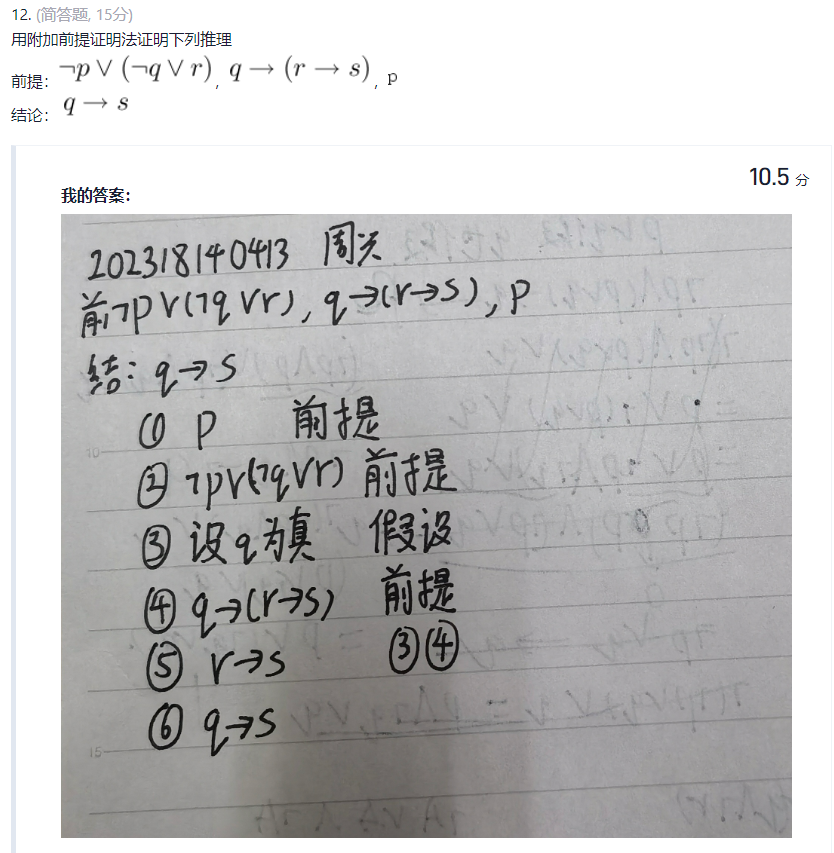 12. (简答题, 15分)
用附加前提证明法证明下列推理
前提: ¬p∨(¬q∨r), q→(r→s), p
结论: q→s
10.5 分
我的答案:
202318140413 周
前:¬p∨(¬q∨r), q→(r→s), p
结: q→s
① p 前提
② ¬p∨(¬q∨r) 前提
③ 设q为真 假设
④ q→(r→s) 前提
⑤ r→s ③④
⑥ q→s